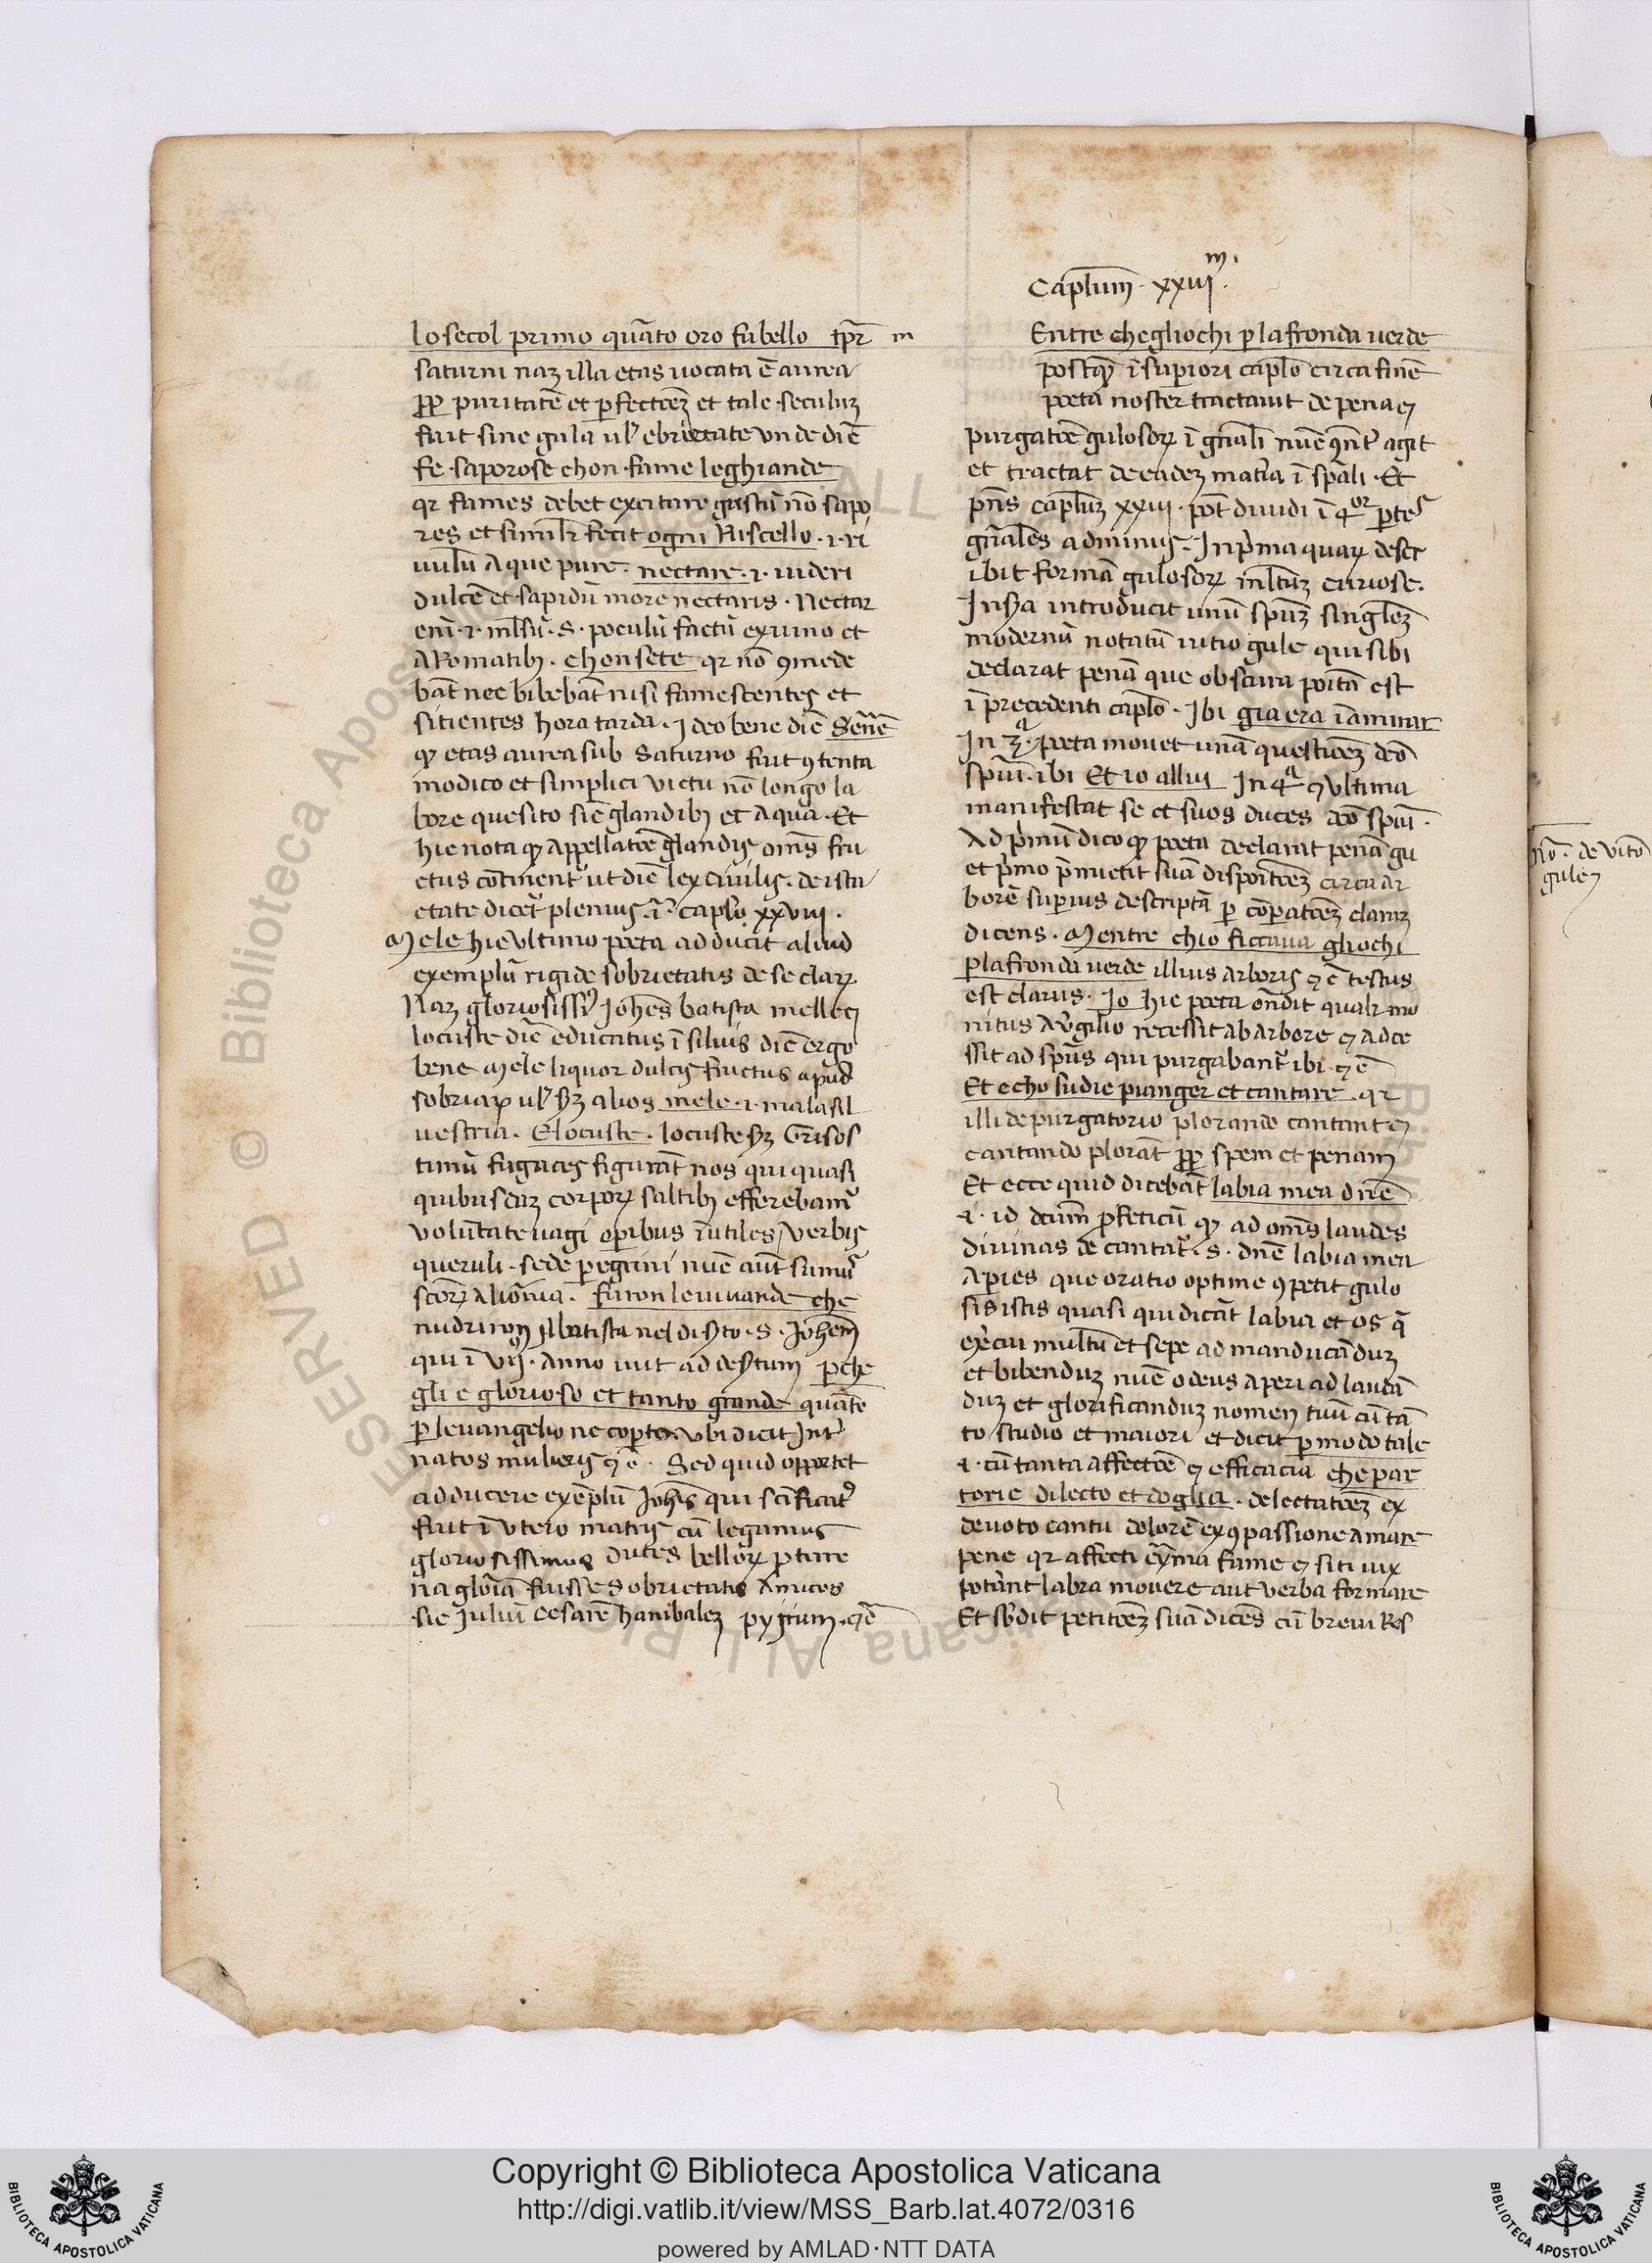 lo secol primo quāto oro fu bello tp̄r
saturni naꝫ illa etas uocata ē aurea
ꝓp̄ puritatē et ꝑfectōeꝫ et tale seculuꝫ
fuit sine gula ul' ebrietate vnde diē
fe saporose chon fame leghiande
qr fames debet excitare gustū nō sapo
res et simil'r fecit ogni Riscello .i. ri
uulū aque pure. nectare .i. uideri
dulcē et sapidū more nectaris. Nectar
eni .i. mlsū .s. poculū factū ex uino et
aromatibꝫ. chon sete qr nō ꝯmede
bāt nec bibebāt nisi famescentes et
sitientes hora tarda. Ideo bene diē Senēc
ꝙ etas aurea sub Saturno fuit ꝯtenta
modico et simplici victu nō longo la
bore quesito sic glandibꝫ et aqua. Et
hic nota ꝙ appellatōe glandis om̄s fru
ctus cōtinent' ut diē lex ciuilis. de ista
etate dicet' plenius ī caplō xxviii.
Mele hic vltimo poeta adducit aliud
exemplū rigide sobrietatis de se claꝝ
Naꝫ gloriosissī Ioh̄es batista melle ⁊
locuste diē educatus ī siluis diē ergo
bene mele liquor dulcis fructus apud
sobrioꝝ ul' sꝫ alios mele .i. mala sil
uestria. E locuste. locuste sꝫ Grisos
timū fugaces figurāt nos qui quasi
quibusdaꝫ corpoꝝ saltibꝫ efferebam'
volūtate uagi operibus īutiles verbis
queruli. sede peregrini nūc aūt sumus
furon le uiuande che
nudriron il batista nel diserto .s. Ioh̄em
qui ī vij. anno iuit ad desertum perche
gli e glorioso et tanto grande quāto
per leuangelio ne coperto. vbi dicit Int'
natos mulieris ⁊ c̄. Sed quid opportet
adducere exēplū Ioh̄is qui sc̄ificat'
fuit ī vtero matris cū legamus
gloriosissimos duces belloꝝ
na gloīa fuisse sobrietatis amicos
sic Iuliū Cesarē hanibaleꝫ pyrrum.
Caplum. xxiiiᵐ.
Entre che gliochi ꝑ la fronda uerde
postꝙ ī superiori caplō circa finē
poeta noster tractauit de pena ⁊
purgatōe gulosoꝝ ī gn̄ali nūc ꝯn̄t' agit
et tractat de eadeꝫ mat'ia ī sp̄ali. Et
pn̄s caplūꝫ xxiii. pōt diuidi ī 4ᵒʳ ꝑtes
gn̄ales ad minus. In p'ma quaꝝ descr
ibit formā gulosoꝝ mltūꝫ curiose.
In sꝫa introducit unū spūꝫ singl'eꝫ
modernū notatū uitio gule qui sibi
declarat penā que obscura posita est
ī precedenti caplō. Ibi gia era
In 3ᵃ. poeta mouet unā questiōeꝫ dc̄o
spūi. ibi Et io allui In 4ᵃ ⁊ vltima
manifestat se et suos duces dc̄o spūi.
Ad p'mū dico ꝙ poeta declarat penā gu
et p'mo p̄mictit suā dispositōeꝫ circa ar
borē superius descriptā per cōparatōeꝫ claraꝫ
dicens. Mentre chio ficcaua gliochi
per la fronda uerde illius arboris ⁊ c̄ testus
est clarus. Io hic poeta on̄dit qual'r mo
nitus a Virgilio recessit ab arbore ⁊ acce
ssit ad spūs qui purgabant' ibi ⁊ c̄
Et echo sudie pianger et cantare. qr
illi de purgatorio plorando cantant ⁊
cantando plorāt ꝓp̄ spem et penam
Et ecce quid dicebāt labia mea dn̄e
.i. id dcūm ꝓfeticū ꝙ ad om̄s laudes
diuinas decantat' .s. dn̄e labia mea
aperies que oratio optime ꝯpetit gulo
sis istis quasi qui dicāt labia et os
multū et sepe ad manducāduꝫ
et bibenduꝫ nūc o deus aperi ad laudā
duꝫ et glorificanduꝫ nomen tuū cū tā
to studio et maiori et dicit per modo tale
.i. cū tanta affectōe ⁊ efficacia che par
torie dilecto et doglia. delectatōeꝫ ex
deuoto cantu dolorē ex ꝯpassione amare
pene qr affecti fame ⁊ siti uix
potāt labra mouere aut verba formare
Et sb'dit petitōeꝫ suā dicēs cū breui Res
nō. de vitio
gule
Copyright © Biblioteca Apostolica Vaticana
http://digi.vatlib.it/view/MSS_Barb.lat.4072/0316
powered by AMLAD·NTT DATA